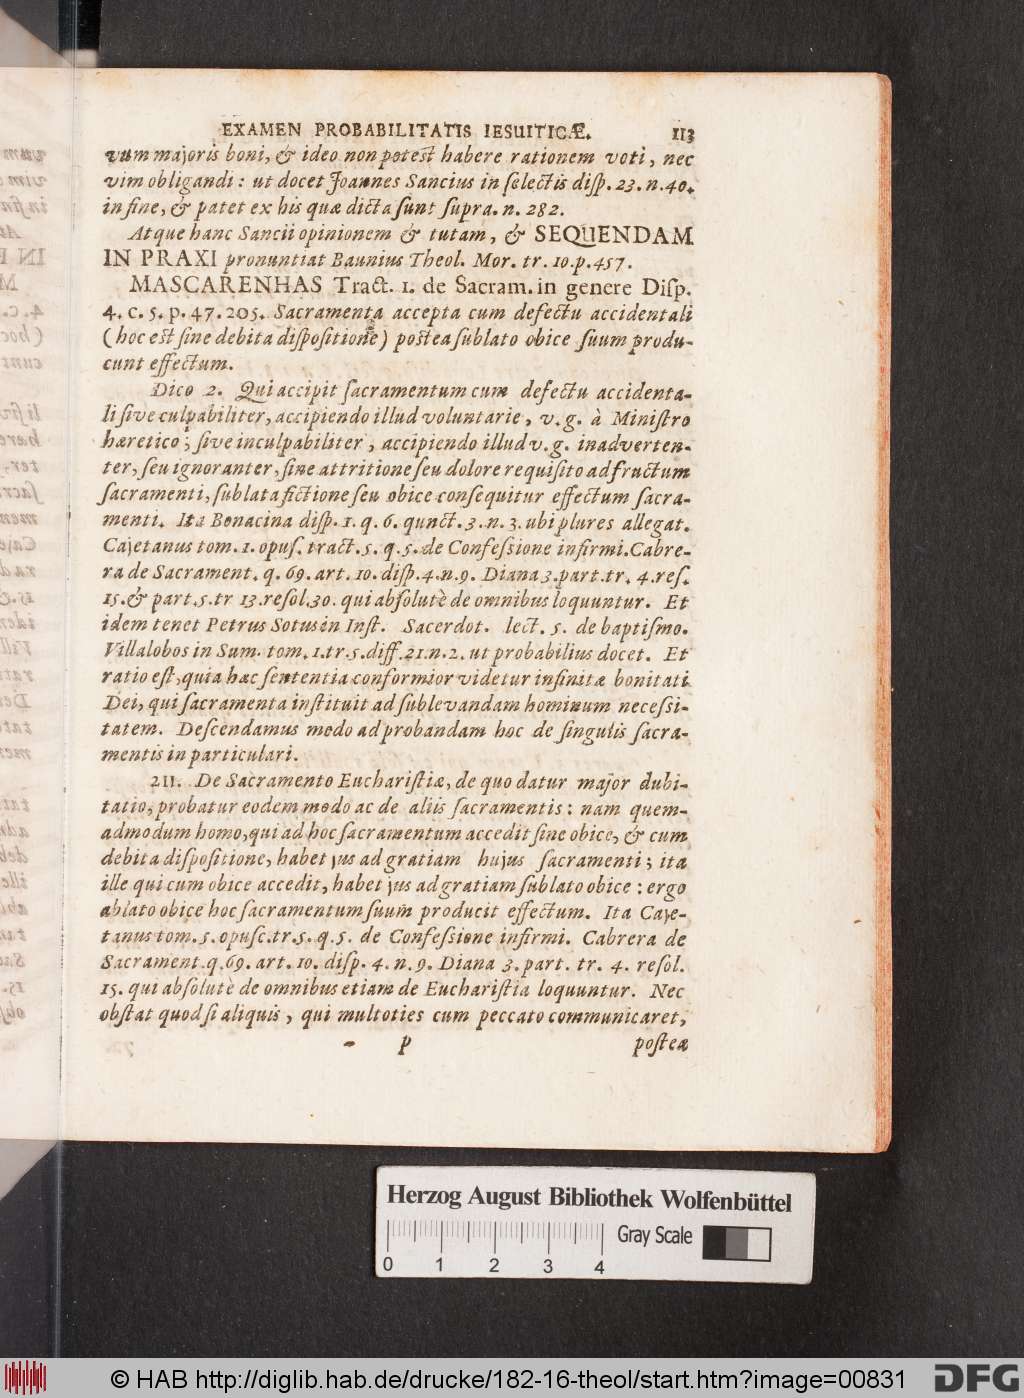 EXAMEN PROBABILITATIS IESUITICÆ. 113
vum majoris boni, & ideo non potest habere rationem voti, nec
vim obligandi: ut docet Joannes Sancius in selectis disp. 23. n. 40.
in fine, & patet ex his quæ dicta sunt supra. n. 282.
Atque hanc Sancii opinionem & tutam, & SEQUENDAM
IN PRAXI pronuntiat Baunius Theol. Mor. tr. 10. p. 457.
MASCARENHAS Tract. 1. de Sacram. in genere Disp.
4. c. 5. p. 47. 205. Sacramenta accepta cum defectu accidentali
(hoc est sine debita dispositione) postea sublato obice suum produ-
cunt effectum.
Dico 2. Qui accipit sacramentum cum defectu accidenta-
li sive culpabiliter, accipiendo illud voluntarie, v. g. à Ministro
hæretico; sive inculpabiliter, accipiendo illud v. g. inadverten-
ter, seu ignoranter, sine attritione seu dolore requisito ad fructum
sacramenti, sublata fictione seu obice consequitur effectum sacra-
menti. Ita Bonacina disp. 1. q. 6. qunct. 3. n. 3. ubi plures allegat.
Cajetanus tom. 1. opus. tract. 5. q. 5. de Confessione infirmi. Cabre-
ra de Sacrament. q. 69. art. 10. disp. 4. n. 9. Diana 3. part. tr. 4. res.
15. & part. 5. tr 13. resol. 30. qui absolutè de omnibus loquuntur. Et
idem tenet Petrus Sotus in Inst. Sacerdot. lect. 5. de baptismo.
Villalobos in Sum. tom. 1. tr. 5. diff. 21. n. 2. ut probabilius docet. Et
ratio est, quia hæc sententia conformior videtur infinitæ bonitati
Dei, qui sacramenta instituit ad sublevandam hominum necessi-
tatem. Descendamus modo ad probandam hoc de singulis sacra-
mentis in particulari.
211. De Sacramento Eucharistiæ, de quo datur major dubi-
tatio, probatur eodem modo ac de aliis sacramentis: nam quem-
admodum homo, qui ad hoc sacramentum accedit sine obice, & cum
debita dispositione, habet jus ad gratiam hujus sacramenti; ita
ille qui cum obice accedit, habet jus ad gratiam sublato obice: ergo
ablato obice hoc sacramentum suum producit effectum. Ita Caje-
tanus tom. 5. opusc. tr. 5. q. 5. de Confessione infirmi. Cabrera de
Sacrament. q. 69. art. 10. disp. 4. n. 9. Diana 3. part. tr. 4. resol.
15. qui absolutè de omnibus etiam de Eucharistia loquuntur. Nec
obstat quod si aliquis, qui multoties cum peccato communicaret,
P posteæ
Herzog August Bibliothek Wolfenbüttel
Gray Scale
0 1 2 3 4
© HAB http://diglib.hab.de/drucke/182-16-theol/start.htm?image=00831
DFG